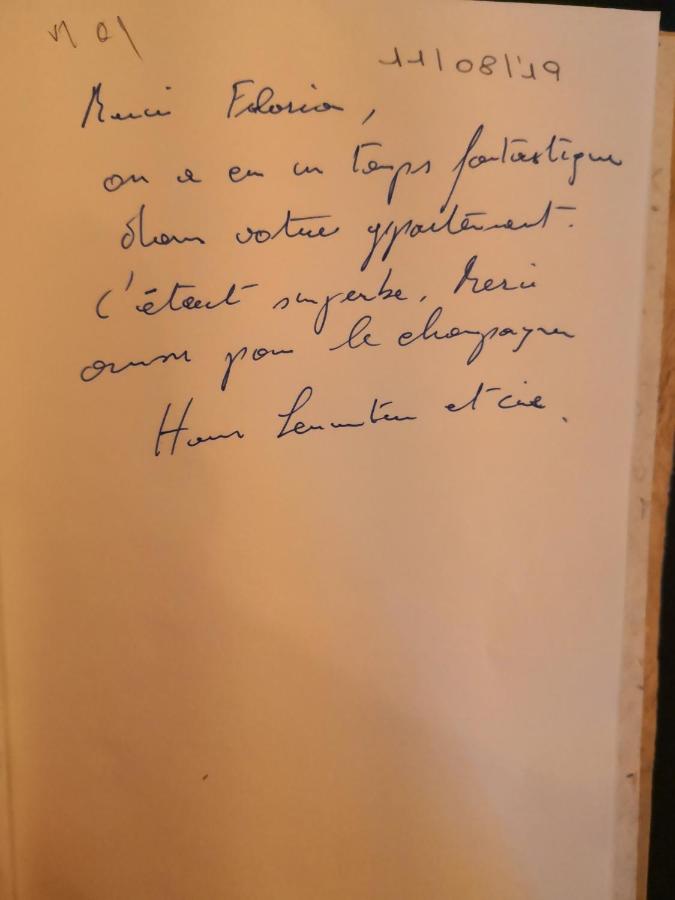 Merci Floria,
on a eu un temps fantastique
dans votre appartement.
C'était superbe. Merci
aussi pour le champagne
Hans et cie.